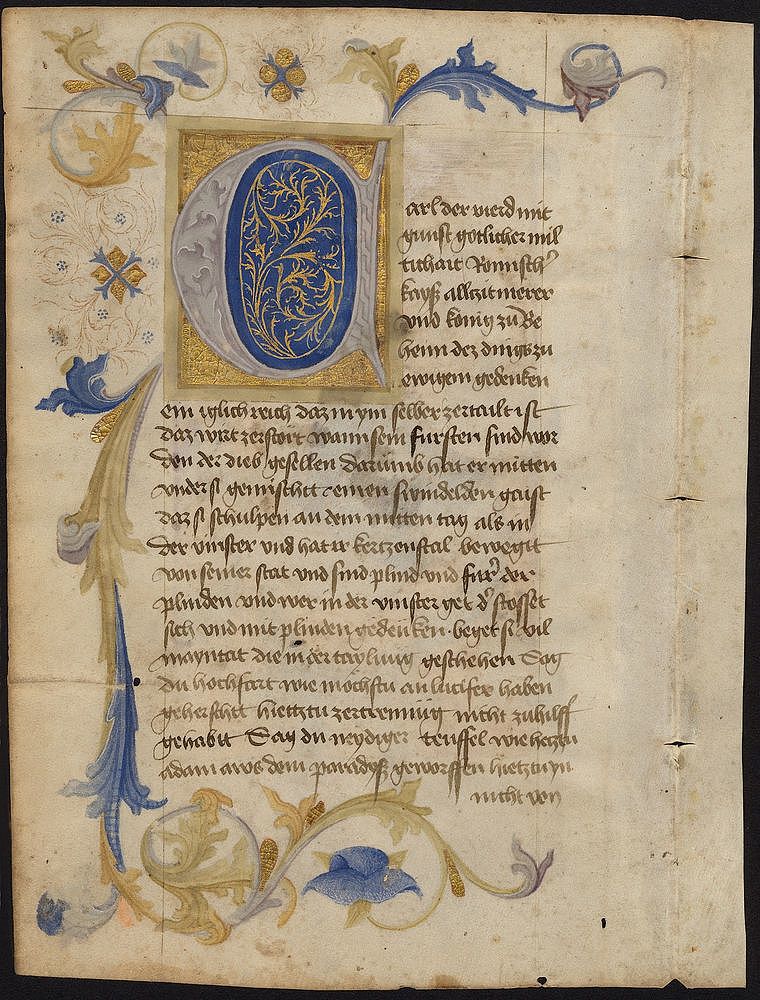 Carl der vierd mit
gunst gotlicher mil
tichait Romisch'
kayß allzit merer
vnd konig zu Be
heim dez dings zu
ewigem gedenken
ein iglich reich daz in ym selber zertailt ist
daz wirt zerstort wann sein fursten sind wor
den der dieb gesellen darumb hat er mitten
vnder si gemischet einen swindelden gaist
daz si schulpen an dem mitten tag als in
der vinster vnd hat ir kertzenstal bewegit
von seiner stat vnd sind plind vnd fur' der
plinden vnd wer in der vinster get d' stosset
sich vnd mit plinden gedenken beget si vil
mayntat die in der taylung geschehen Sag
du hochfart wie mochstu an lucifer haben
geherschet hiettztu zertrennüg nicht zu hilff
gehabit Sag du neydiger teuffel wie hetztu
adam aws dem paradyß geworffen hietztu yn
nicht von